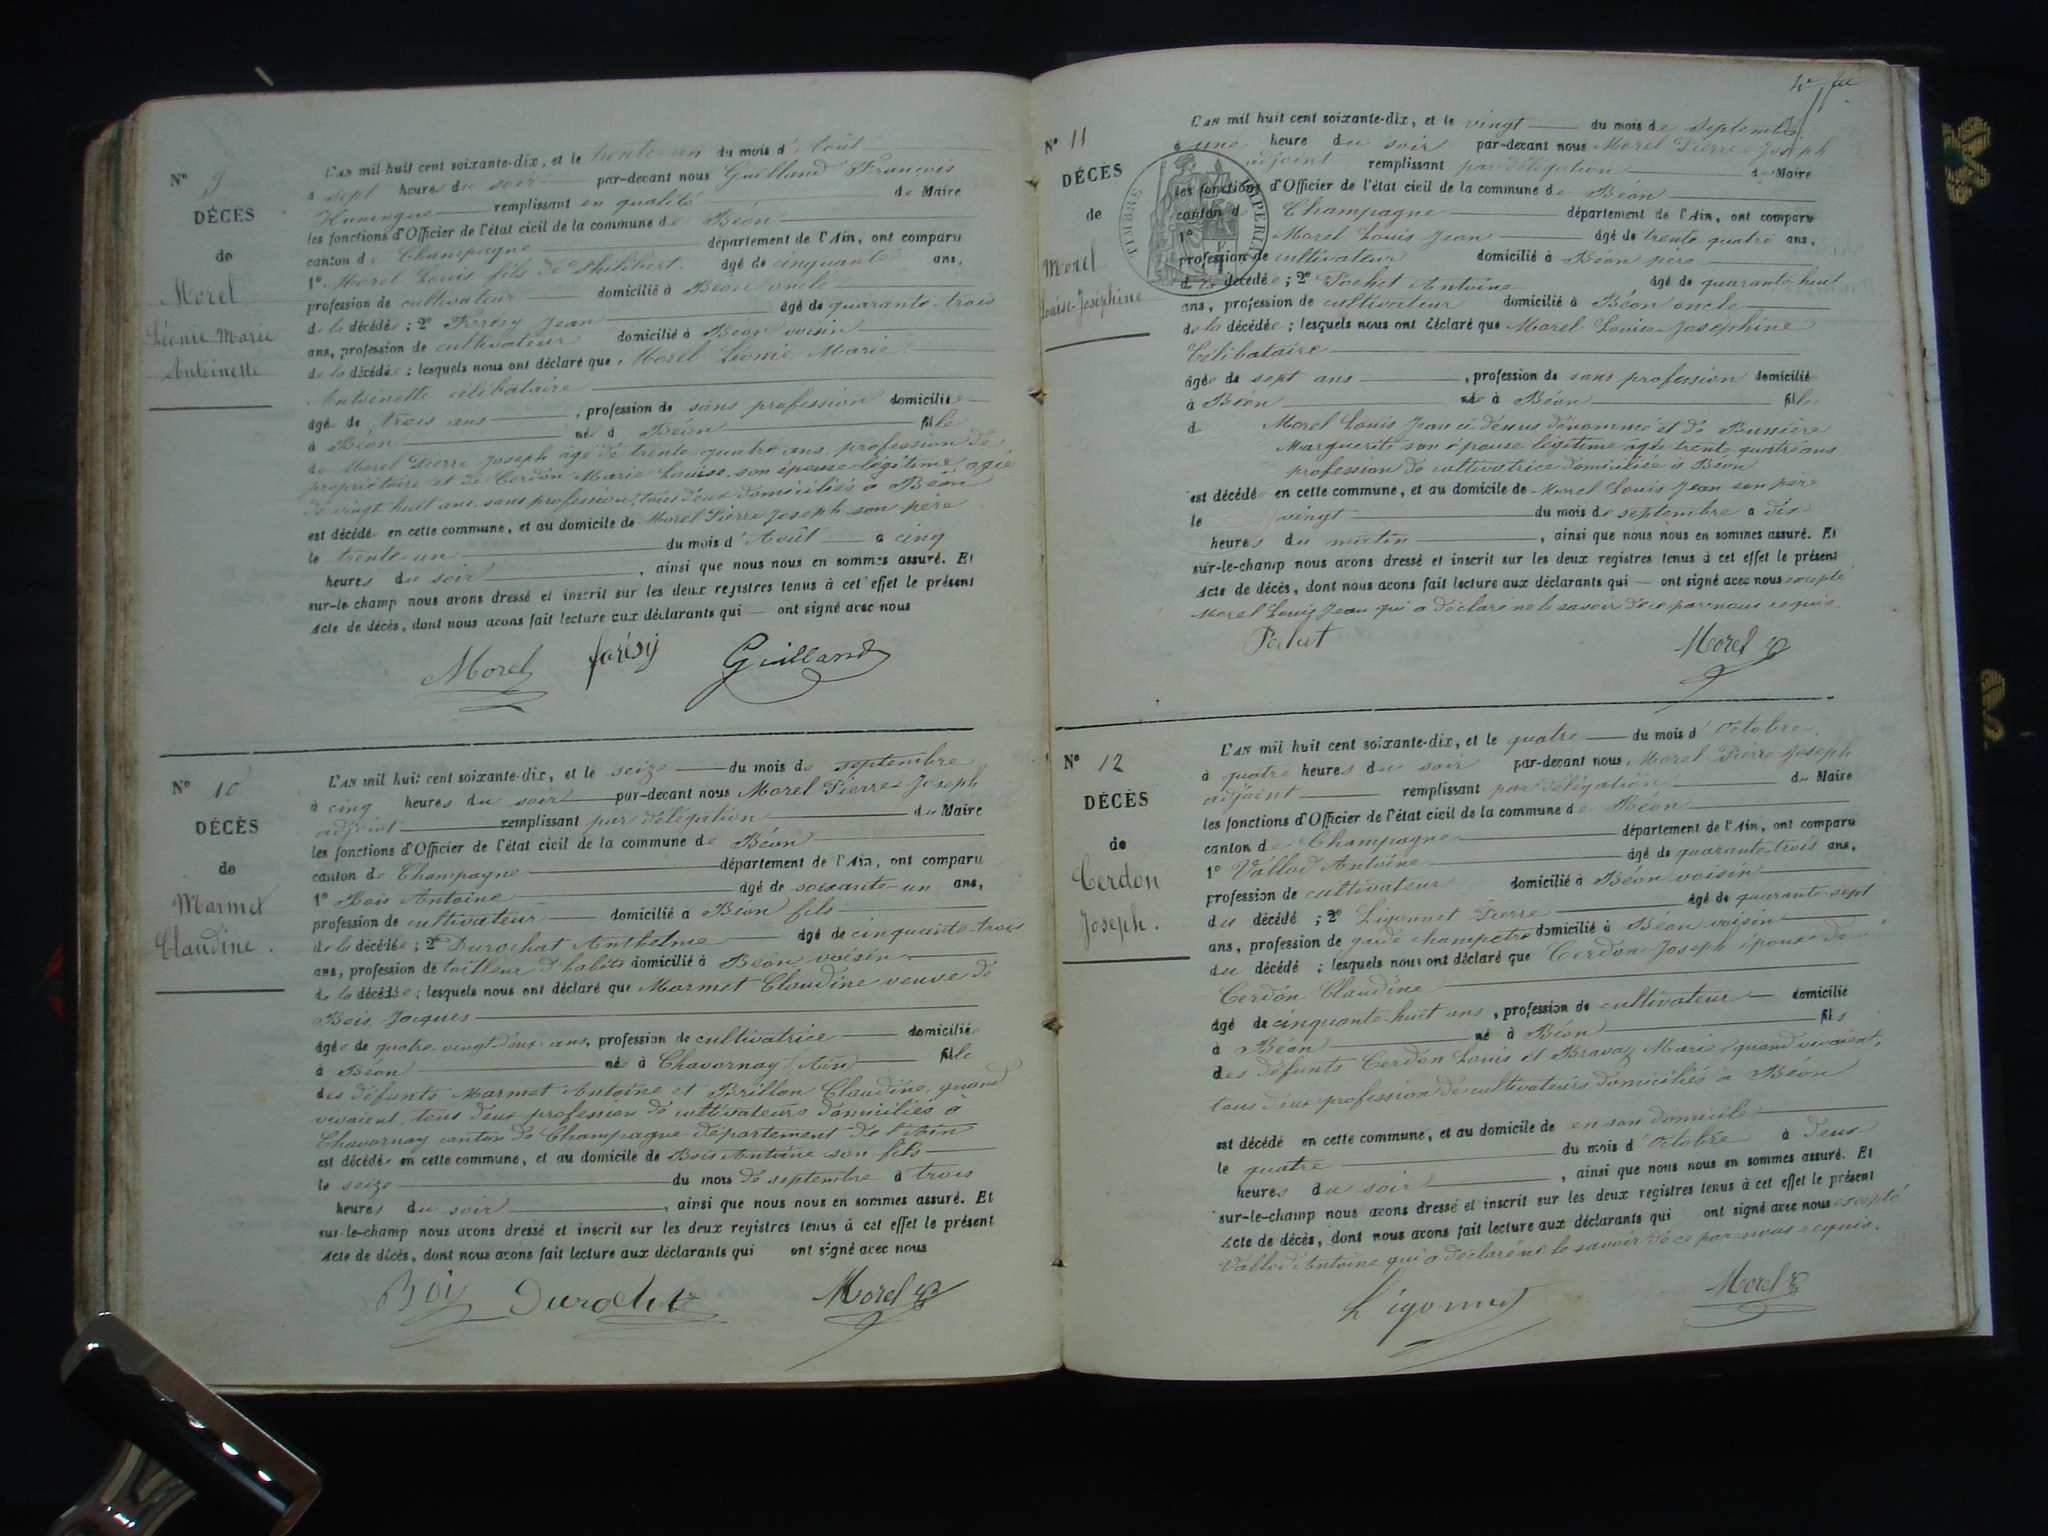 N° 9
DÉCÈS
de
Morel
Léonie Marie
Antoinette
L'AN mil huit cent soixante-dix, et le trente-un du mois d'Août
à sept heures du soir par-devant nous Guilland François
Huningue remplissant en qualité de Maire
les fonctions d'Officier de l'état civil de la commune de Béon
canton de Champagne département de l'Ain, ont comparu
1° Morel Louis fils de Philibert âgé de cinquante ans,
profession de cultivateur domicilié à Béon oncle
de la décédée ; 2° Ferésy Jean âgé de quarante-trois
ans, profession de cultivateur domicilié à Béon voisin
de la décédée ; lesquels nous ont déclaré que Morel Léonie Marie
Antoinette célibataire
âgé de trois ans, profession de sans profession domicilié
à Béon né à Béon fille
de Morel Pierre Joseph âgé de trente-quatre ans, profession de
propriétaire et de Cerdon Marie Louise son épouse légitime âgée
de vingt huit ans, sans profession, tous deux domiciliés à Béon
est décédé en cette commune, et au domicile de Morel Pierre Joseph son père
le trente-un du mois d'Août à cinq
heures du soir, ainsi que nous nous en sommes assuré. Et
sur-le-champ nous avons dressé et inscrit sur les deux registres tenus à cet effet le présent
Acte de décès, dont nous avons fait lecture aux déclarants qui — ont signé avec nous
Morel farésy Guilland
N° 10
DÉCÈS
de
Marmet
Claudine.
L'AN mil huit cent soixante-dix, et le seize du mois de septembre
à cinq heures du soir par-devant nous Morel Pierre-Joseph
adjoint remplissant par délégation du Maire
les fonctions d'Officier de l'état civil de la commune de Béon
canton de Champagne département de l'Ain, ont comparu
1° Bois Antoine âgé de soixante-un ans,
profession de cultivateur domicilié à Béon fils
de la décédée ; 2° Durochat Anthelme âgé de cinquante-trois
ans, profession de tailleur d'habits domicilié à Béon voisin
de la décédée ; lesquels nous ont déclaré que Marmet Claudine veuve de
Bois Jacques
âgée de quatre-vingt-deux ans, profession de cultivatrice domicilié
à Béon né à Chavornay (Ain) fille
des défunts Marmet Antoine et Brillon Claudine, quand
vivaient, tous deux profession de cultivateurs domiciliés à
Chavornay canton de Champagne département de l'Ain
est décédé en cette commune, et au domicile de Bois Antoine son fils
le seize du mois de septembre à trois
heures du soir, ainsi que nous nous en sommes assuré. Et
sur-le-champ nous avons dressé et inscrit sur les deux registres tenus à cet effet le présent
Acte de décès, dont nous avons fait lecture aux déclarants qui ont signé avec nous
Boi Durochat Morel
N° 11
DÉCÈS
de
Morel
Louise-Joséphine
TIMBRE IMPERIAL
L'AN mil huit cent soixante-dix, et le vingt du mois de septembre
à une heure du soir par-devant nous Morel Pierre-Joseph
adjoint remplissant par délégation du Maire
les fonctions d'Officier de l'état civil de la commune de Béon
canton d Champagne département de l'Ain, ont comparu
1° Morel Louis Jean âgé de trente quatre ans,
profession de cultivateur domicilié à Béon père
de la décédée ; 2° Pochet Antoine âgé de quarante huit
ans, profession de cultivateur domicilié à Béon oncle
de la décédée ; lesquels nous ont déclaré que Morel Louise-Joséphine
Célibataire
âgée de sept ans, profession de sans profession domicilié
à Béon né à Béon fille
d Morel Louis Jean ci-dessus dénommé et de Bussière
Marguerite son épouse légitime âgée trente quatre ans
profession de cultivatrice domiciliée à Béon
est décédé en cette commune, et au domicile de Morel Louis Jean son père
le vingt du mois de septembre à dix
heures du matin, ainsi que nous nous en sommes assuré. Et
sur-le-champ nous avons dressé et inscrit sur les deux registres tenus à cet effet le présent
Acte de décès, dont nous avons fait lecture aux déclarants qui — ont signé avec nous excepté
Morel Louis Jean qui a déclaré ne le savoir de ce par nous requis.
Pochet Morel
N° 12
DÉCÈS
de
Cerdon
Joseph.
L'AN mil huit cent soixante-dix, et le quatre du mois d'Octobre
à quatre heures du soir par-devant nous Morel Pierre-Joseph
adjoint remplissant par délégation du Maire
les fonctions d'Officier de l'état civil de la commune de Béon
canton de Champagne département de l'Ain, ont comparu
1° Vallod Antoine âgé de quarante-trois ans,
profession de cultivateur domicilié à Béon voisin
du décédé ; 2° Ligonnet Pierre âgé de quarante-sept
ans, profession de garde champetre domicilié à Béon voisin
du décédé ; lesquels nous ont déclaré que Cerdon Joseph époux de
Cerdon Claudine
âgé de cinquante-huit ans, profession de cultivateur domicilié
à Béon né à Béon fils
des défunts Cerdon Louis et Bravaz Marie, quand vivaient,
tous deux profession de cultivateurs domiciliés à Béon
est décédé en cette commune, et au domicile de en son domicile
le quatre du mois d'Octobre à deux
heures du soir, ainsi que nous nous en sommes assuré. Et
sur-le-champ nous avons dressé et inscrit sur les deux registres tenus à cet effet le présent
Acte de décès, dont nous avons fait lecture aux déclarants qui ont signé avec nous excepté
Vallod Antoine qui a déclaré ne le savoir de ce par nous requis.
Ligonnet Morel